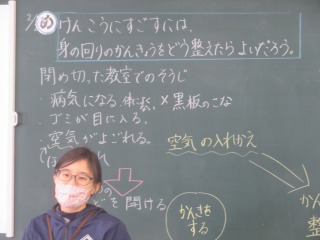 め けんこうにすごすには、
身の回りのかんきょうをどう整えたらよいだろう。
閉め切った教室でのそうじ
・病気になる。体に悪い × 黒板のこな
・ゴミが目に入る。
・空気がよごれる。
空気の入れかえ
を開ける
かんきを
する
かん
整